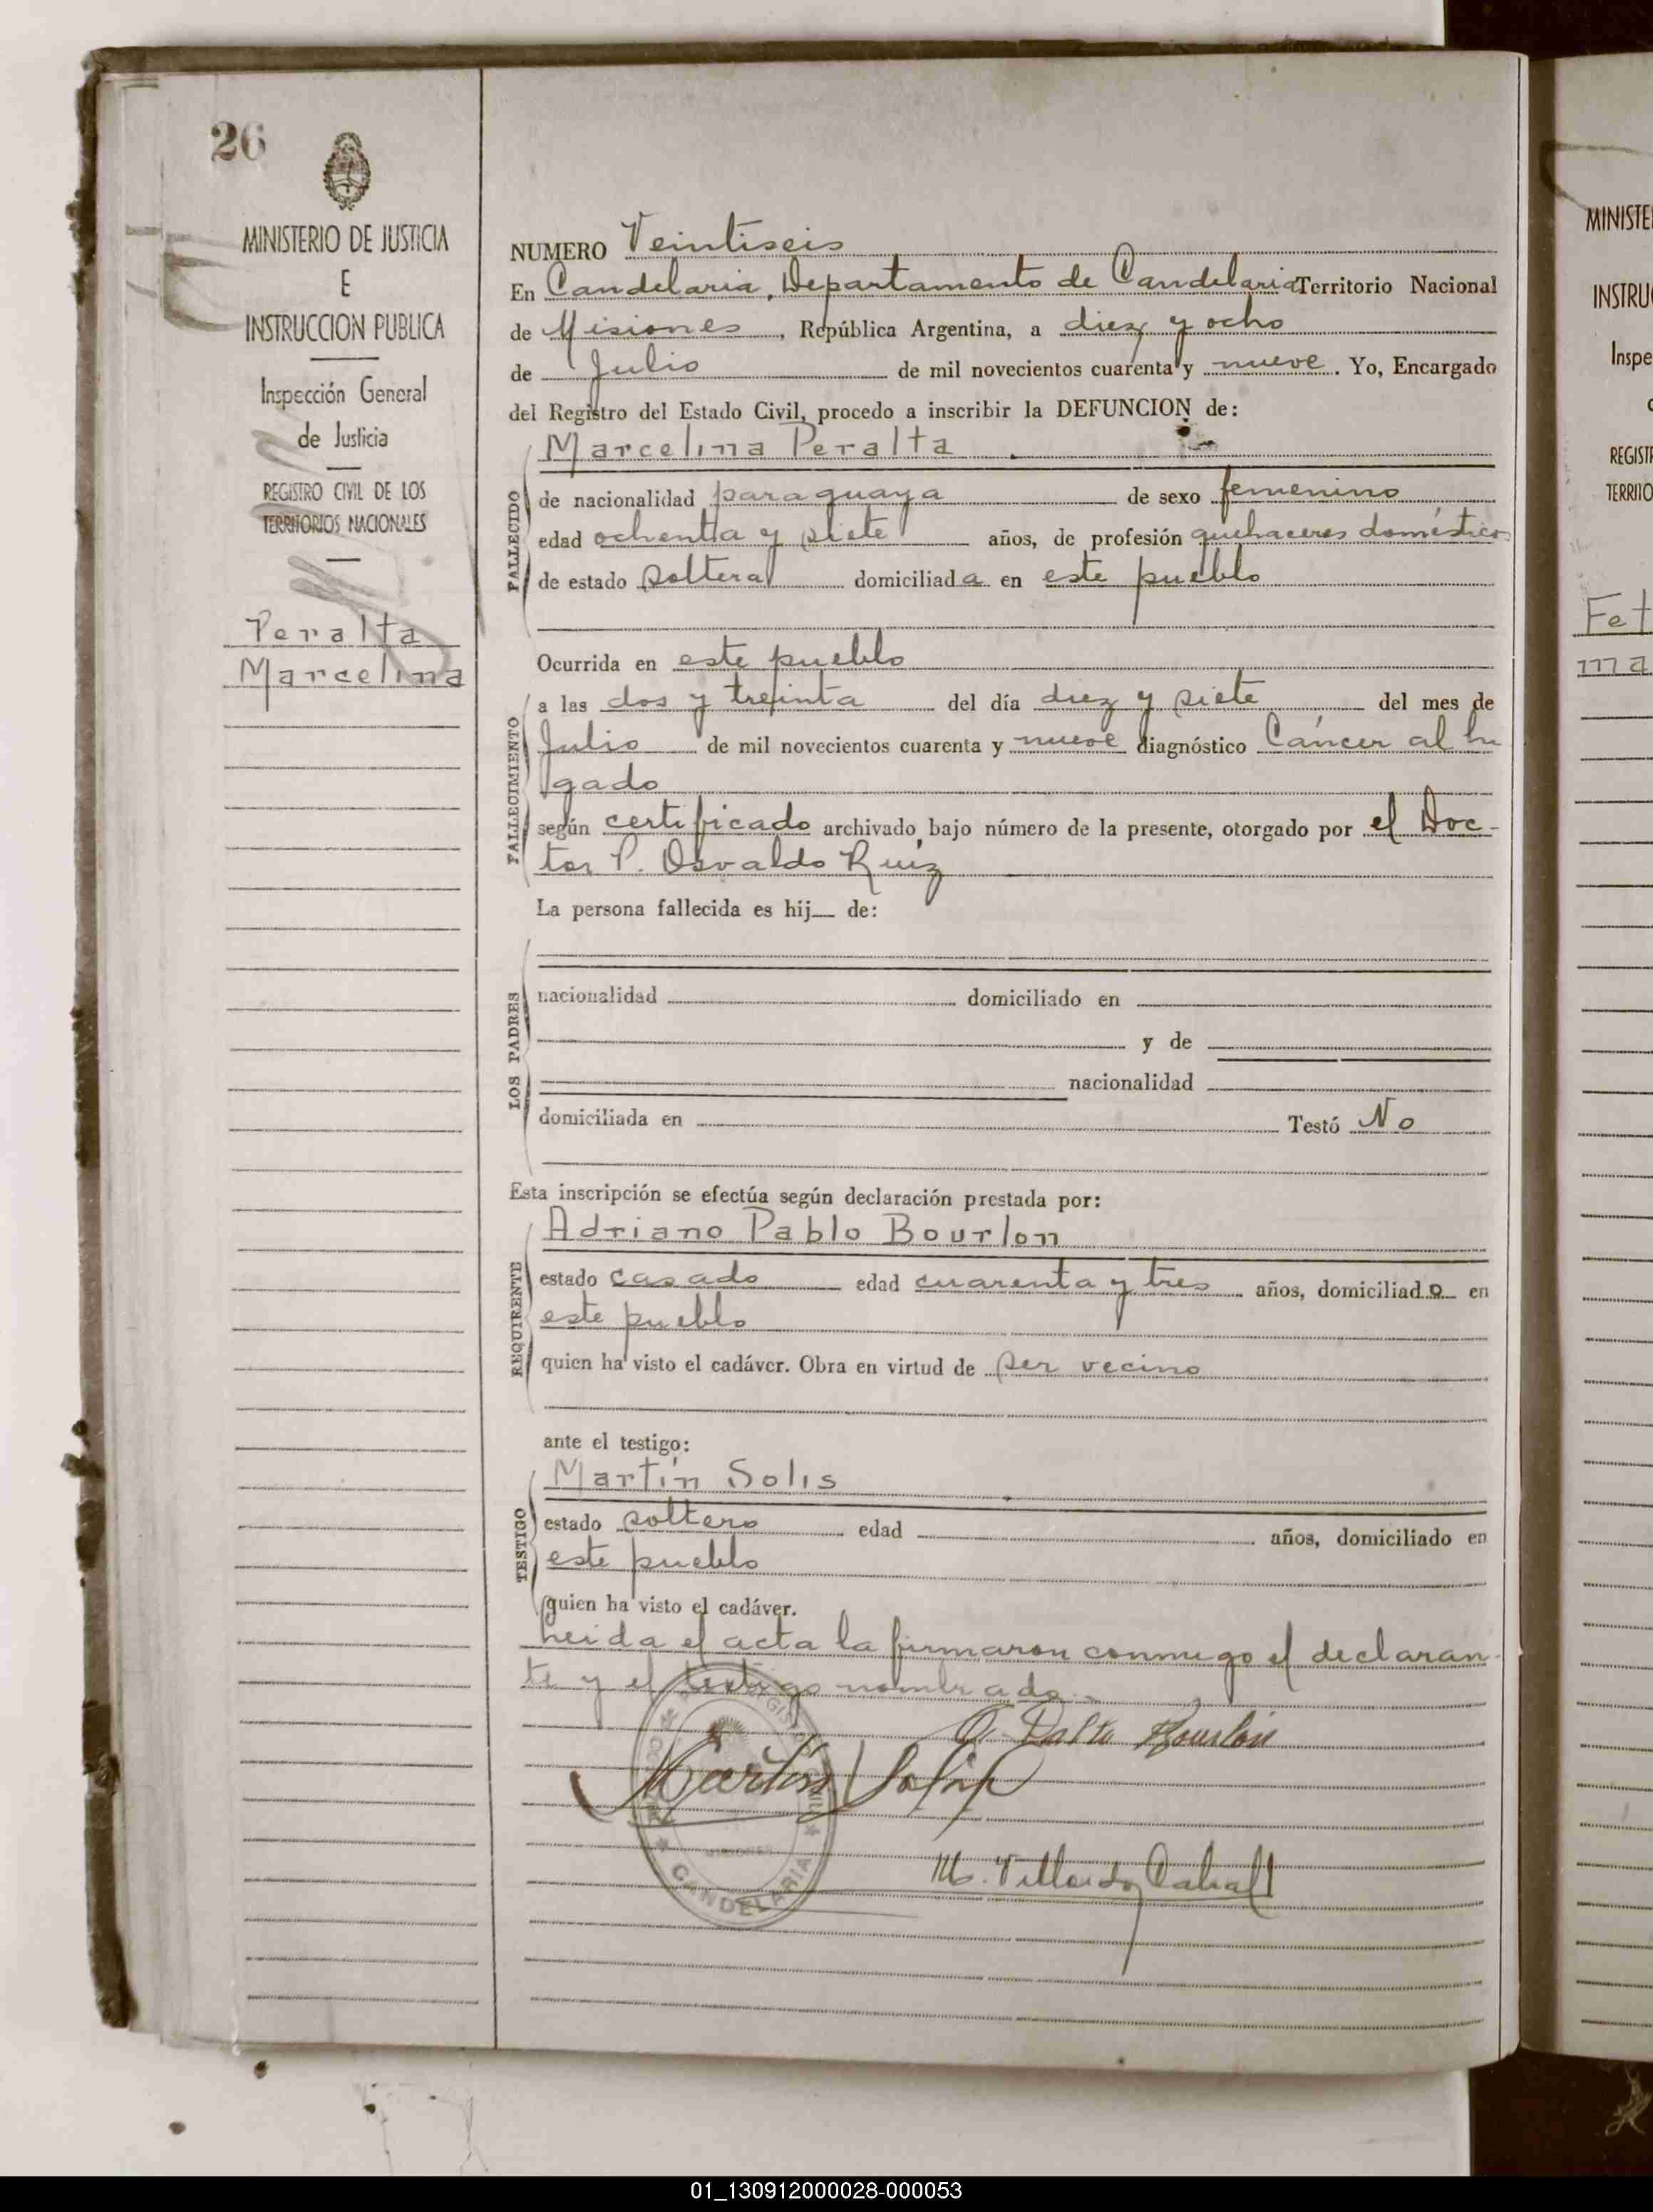 26
MINISTERIO DE JUSTICIA
E
INSTRUCCION PUBLICA
Inspección General
de Justicia
REGISTRO CIVIL DE LOS
TERRITORIOS NACIONALES
Peralta
Marcelina
NUMERO Veintiseis
En Candelaria, Departamento de Candelaria Territorio Nacional
de Misiones, República Argentina, a diez y ocho
de Julio de mil novecientos cuarenta y nueve. Yo, Encargado
del Registro del Estado Civil, procedo a inscribir la DEFUNCION de:
Marcelina Peralta
FALLECIDO
de nacionalidad paraguaya de sexo femenino
edad ochenta y siete años, de profesión quehaceres domésticos
de estado soltera domiciliada en este pueblo
FALLECIMIENTO
Ocurrida en este pueblo
a las dos y treinta del día diez y siete del mes de
Julio de mil novecientos cuarenta y nueve diagnóstico Cáncer al hi
gado
según certificado archivado bajo número de la presente, otorgado por el Doc-
tor P. Osvaldo Ruiz
La persona fallecida es hij de:
LOS PADRES
nacionalidad domiciliado en
y de
nacionalidad
domiciliada en Testó No
Esta inscripción se efectúa según declaración prestada por:
Adriano Pablo Bourlon
REQUIRENTE
estado casado edad cuarenta y tres años, domiciliado en
este pueblo
quien ha visto el cadáver. Obra en virtud de ser vecino
ante el testigo:
Martín Solis
TESTIGO
estado soltero edad años, domiciliado en
este pueblo
quien ha visto el cadáver.
Leida el acta la firmaron conmigo el declaran-
te y el testigo nombrado.
Pablo Bourlon
Martín Solis
CANDELARIA
MINISTE
INSTRU
Inspe
REGIST
TERRITO
Fet
ma
01_130912000028-000053